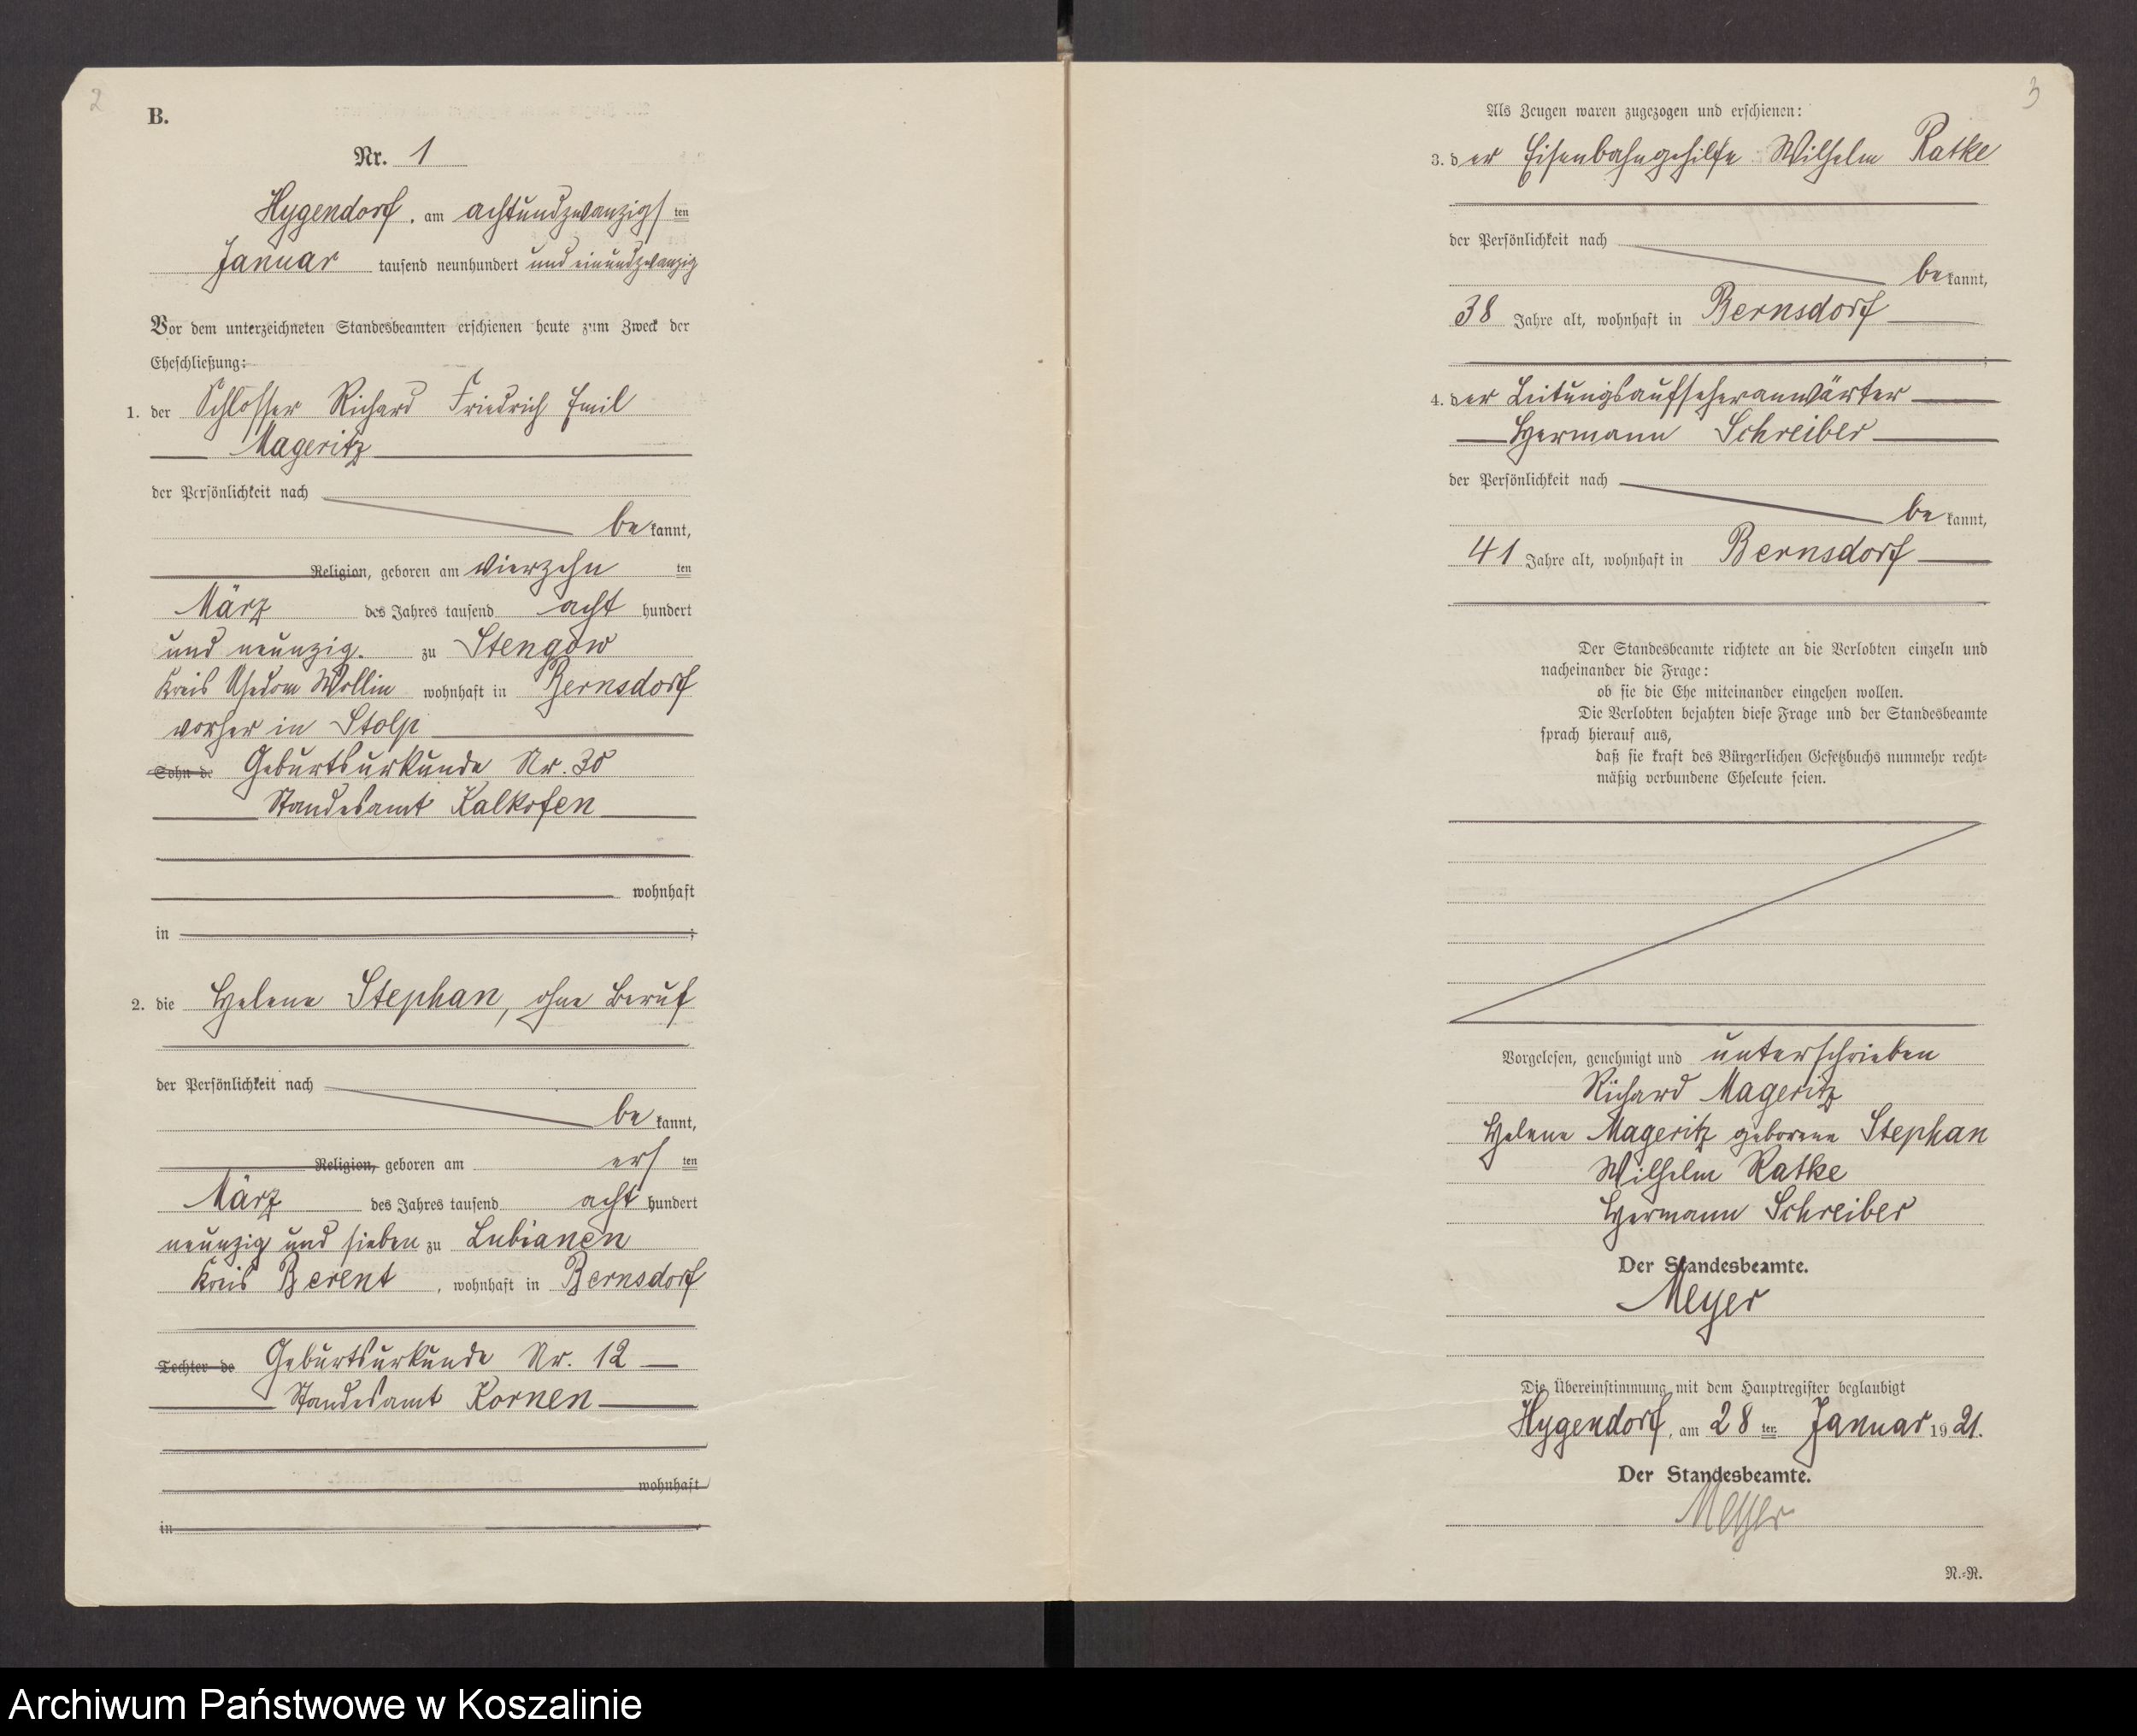 2
B.
Nr. 1
Hygendorf, am achtundzwanzigsten
Januar tausend neunhundert und einundzwanzig
Vor dem unterzeichneten Standesbeamten erschienen heute zum Zweck der
Eheschließung:
1. der Schlosser Richard Friedrich Emil
Mageritz
der Persönlichkeit nach
bekannt,
Religion, geboren am vierzehnten
März des Jahres tausend acht hundert
und neunzig. zu Stengow
Kreis Usedom Wollin wohnhaft in Bernsdorf
vorher in Stolp
Sohn de Geburtsurkunde Nr. 30
Standesamt Kalkofen
wohnhaft
in ;
2. die Helene Stephan, ohne Beruf
der Persönlichkeit nach
bekannt,
Religion, geboren am ersten
März des Jahres tausend acht hundert
neunzig und sieben zu Lubianen
Kreis Berent, wohnhaft in Bernsdorf
Tochter de Geburtsurkunde Nr. 12
Standesamt Kornen
wohnhaft
in
3
Als Zeugen waren zugezogen und erschienen:
3. der Eisenbahngehilfe Wilhelm Ratke
der Persönlichkeit nach
bekannt,
38 Jahre alt, wohnhaft in Bernsdorf
;
4. der Leitungsaufseheranwärter
Hermann Schreiber
der Persönlichkeit nach
bekannt,
41 Jahre alt, wohnhaft in Bernsdorf
Der Standesbeamte richtete an die Verlobten einzeln und
nacheinander die Frage:
ob sie die Ehe miteinander eingehen wollen.
Die Verlobten bejahten diese Frage und der Standesbeamte
sprach hierauf aus,
daß sie kraft des Bürgerlichen Gesetzbuchs nunmehr recht-
mäßig verbundene Eheleute seien.
Vorgelesen, genehmigt und unterschrieben
Richard Mageritz
Helene Mageritz geborene Stephan
Wilhelm Ratke
Hermann Schreiber
Der Standesbeamte.
Meyer
Die Übereinstimmung mit dem Hauptregister beglaubigt
Hygendorf, am 28 ten Januar 1921.
Der Standesbeamte.
Meyer
N.-R.
Archiwum Państwowe w Koszalinie